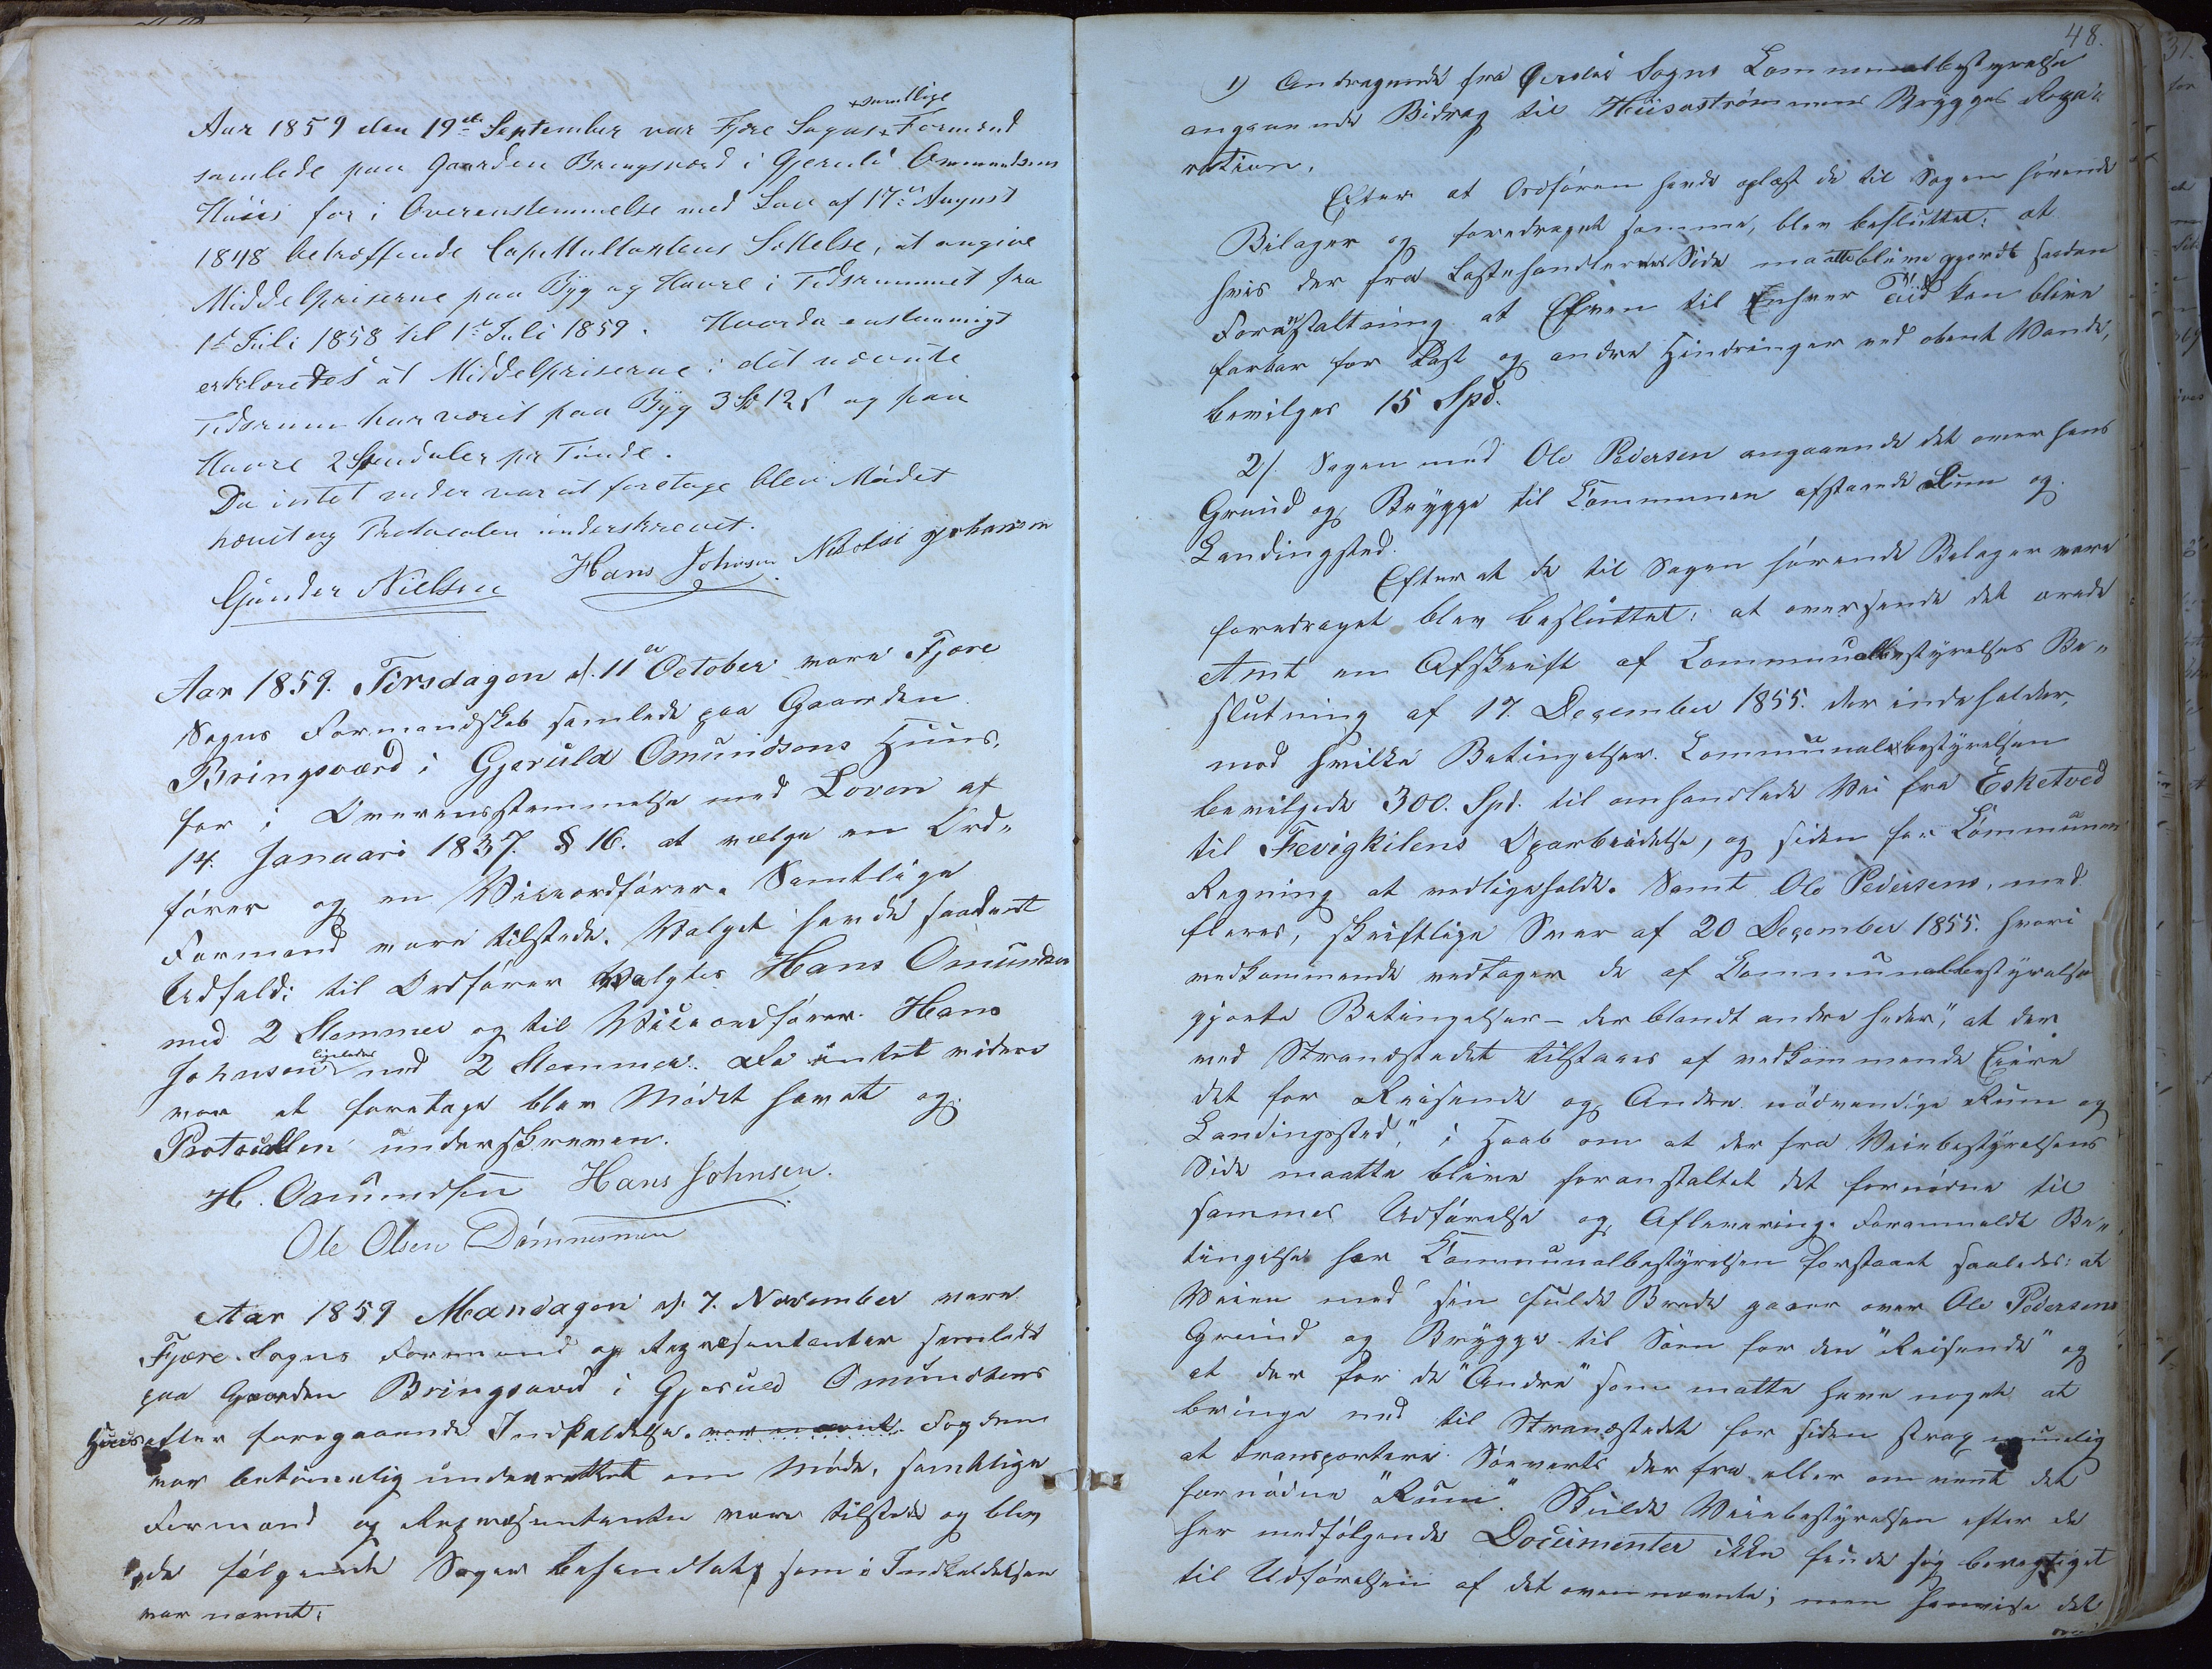 + samtlige
Aar 1859 den 19de September var Fjære Sogns + Formænd
samlede paa Gaarden Bringsværd i Gjeruld Ommundsens
Huus for i Overensstemmelse med Lov af 17de August
1848 betræffende Capitultaxtens Sættelse, at angive
Middelpriserne paa Byg og Havre i Tidsrummet fra
1ste Juli 1858 til 1ste Juli 1859. Hvorda enstemmigt
erklæredes at Middelpriserne i det nævnte
Tidsrum har været paa Byg 3 Sp 12 s og paa
Havre 2 Speciedaler pr Tønde.
Da intet videre var at foretage blev Mødet
hævet og Protocolen underskrevet.
Gunder Nielsen Hans Johnsen Nikolai Johansen
Aar 1859. Tirsdagen d. 11te October vare Fjære
Sogns Formandskab samlede paa Gaarden
Bringsværd i Gjeruld Omundsens Huus,
for i Overensstemmelse med Loven af
14. Januari 1837. § 16. at vælge en Ord-
fører og en Viceordfører. Samtlige
Formænd vare tilstede. Valget havde saadant
Udfald: til Ordfører valgtes Hans Omundsen
med 2 Stemmer og til Viceordfører Hans
ligeledes
Johnsen med 2 Stemmer. Da intet videre
var at foretage blev Mødet hævet og
Protocollen underskreven.
H. Omundsen Hans Johnsen.
Ole Olsen Dømmesmoen
Aar 1859 Mandagen d. 7. November vare
Fjære Sogns Formænd og Repræsentanter samlede
paa Gaarden Bringsværd i Gjeruld Omundsens
Huus efter foregaaende Indkaldelse. var nævnt. Fogden
var betimelig underrettet om Møde, samtlige
Formænd og Repræsentanter vare tilstede og blev
da følgende Sager behandlet, som i Indkaldelsen
var nævnt:
48.
1) Andragende fra Øiestad Sogns Communalbestyrelse
angaaende Bidrag til Strømmens Brygges Repa-
ration.
Efter at Ordføren havde oplæst de til Sagen hørende
Bilager og foredraget samme, blev besluttet: at
hvis der fra Lastehandlernes Side maatte blive gjordt saadan
Foranstaltning at Elven til Enhver Tiid kan blive
farbar for Last og andre Hindringer ved abent Vande,
bevilges 15 Spd.
2/. Sagen med Ole Pedersen angaaende det over hans
Grund og Brygge til Communen afstaaede Rum og
Landingsted.
Efter at de til Sagen hørende Belager vare
foredraget blev besluttet: at oversende det ærede
Amt en Afskrift af Communalbestyrelsens Be-
slutning af 17. December 1855. der indeholder,
mod hvilke Betingelser Communalbestyrelsen
bevilgede 300. Spd. til omhandlede Vei fra Esketved
til Fevigkilens Oparbeidelse, og siden for Communens
Regning at vedligeholde. Samt Ole Pedersens, med
fleres, skriftlige Svar af 20 December 1855. hvori
vedkommende vedtager de af Communalbestyrelsen
gjorte Betingelser – der blandt andre heder," at der
ved Strandstedet tilstaaes af vedkommende Eiere
det for Reisende og Andre nødvendige Rum og
Landingssted," i Haab om at der fra Veibestyrelsens
Side maatte blive foranstaltet det fornødne til
sammes Udførelse og Aflevering. Foranmeldt Be-
tingelse har Communalbestyrelsen forstaaet saaledes: at
Veien med sin fulde Brede gaaer over Ole Pedersens
Grund og Brygge til Søen for den "Reisende" og
at der for de "Andre" som matte have noget at
bringe ned til Strandstedet for siden strax muelig
at transportere Søeverts der fra eller omvent det
fornødne "Rum". Skulde Veiebestyrelsen efter de
her medfølgende Documenter ikke finde sig berettiget
til Udførelsen af det ovennævnte; men henvise det